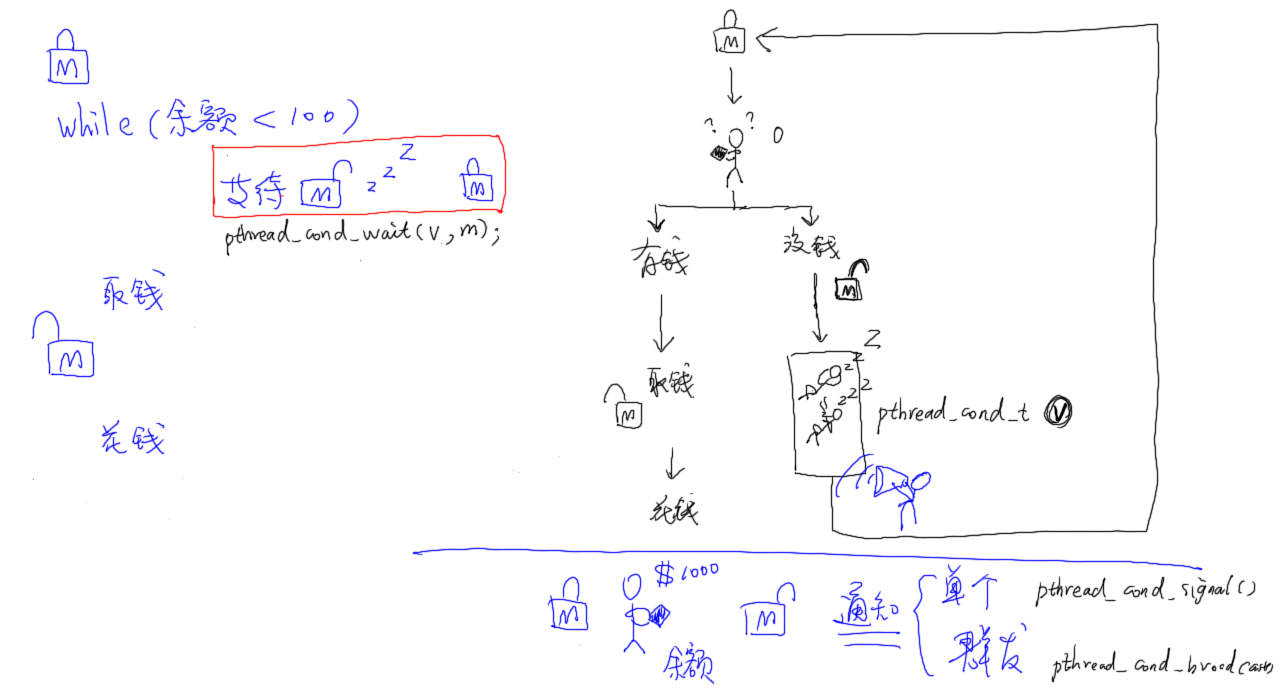 M
while (余额 < 100)
等待 M z z Z M
pthread_cond_wait(v, m);
取钱
M
花钱
M
? ? 0
有钱
没钱
M
取钱
M
z z Z
z z z
pthread_cond_t V
花钱
M
$1000
余额
M
通知
单个 pthread_cond_signal()
群发 pthread_cond_broadcast